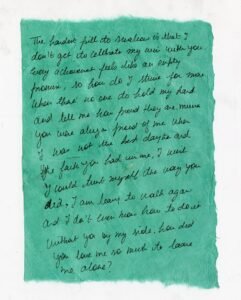 The hardest pill to swallow is that I
don't get to celebrate my wins with you
every achievement feels like an empty
promise, so how do I strive for more
when theres no one to hold my hand
and tell me how proud they are mumma
You were always proud of me when
I was not the best daughter and
the faith you had in me, I wish
I could trust myself the way you
did, I am learning to walk again
and I don't even know how to do it
without you by my side, how did
you love me so much to leave
me alone?